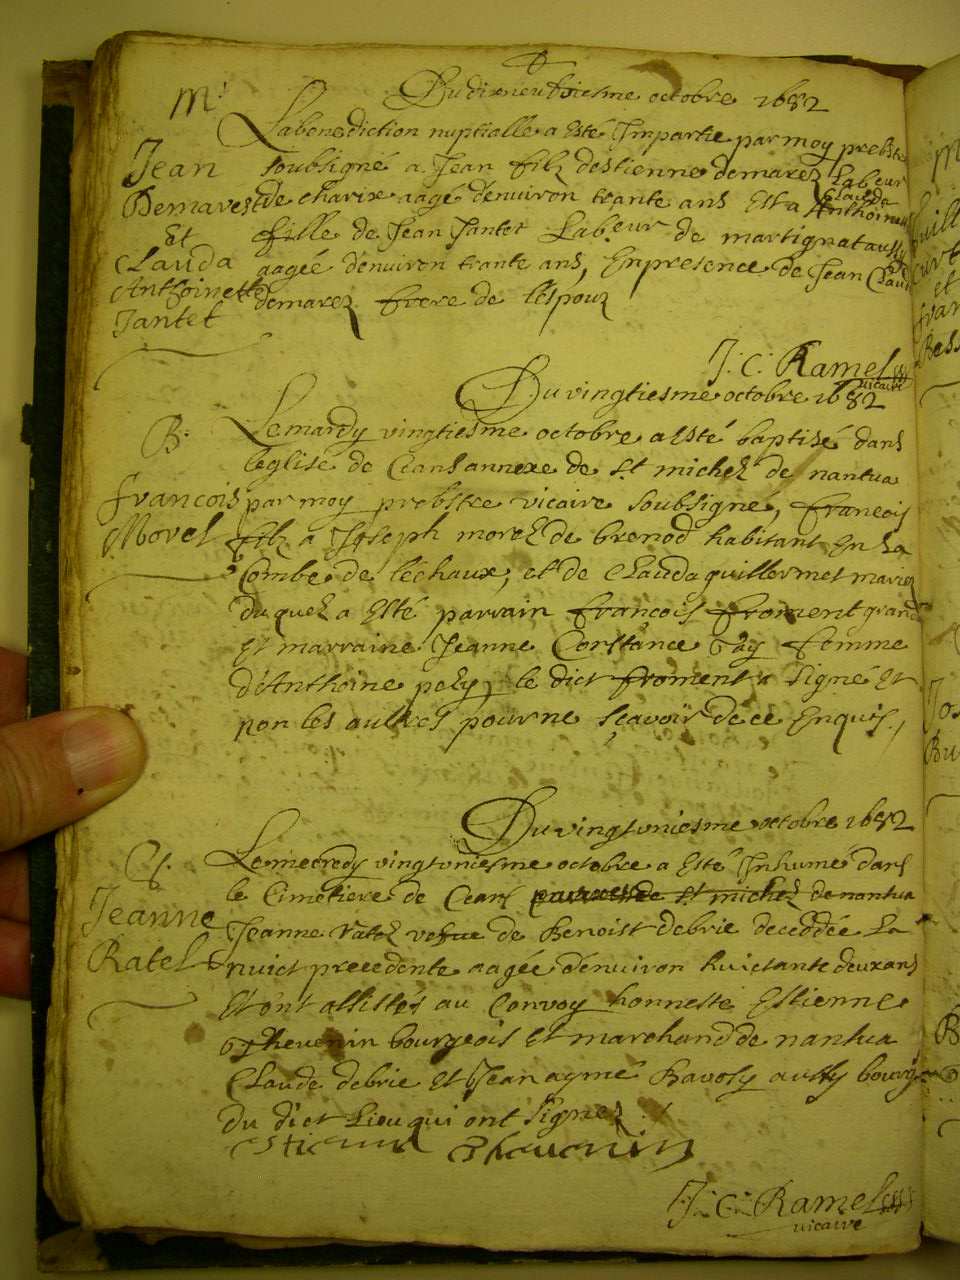 Du dixneufviesme octobre 1682
M.
Jean
Demarest
Et
Clauda
Anthoinette
Jantet
La benediction nuptialle a esté Impartie par moy prebstre
soubsigné a Jean filz destienne demarez Labeur
de charix aagé denuiron trante ans Et a Clauda Anthoinette
fille de Jean Jantet Labeur de martignat aussy
aagée denuiron trante ans, En presence de Jean Claude
demarez frere de lespouz
J. C. Ramel
vicaire
Du vingtiesme octobre 1682
B.
francois
Morel
Le mardy vingtiesme octobre a esté baptisé dans
leglise de Ceans annexe de st michel de nantua
par moy prebstre vicaire soubsigné, francois
filz a Joseph morel de brenod habitant En La
Combe de léchaux, et de Clauda guillermet mariez
duquel a esté parrain francois froment grand
Et marraine Jeanne Constance Gay femme
d'Anthoine pely, le dict froment a signé Et
non les aultres pour ne sçavoir de ce Enquis,
Du vingtuniesme octobre 1682
Jeanne
Ratel
Le mecredy vingtuniesme octobre a esté Inhumé dans
le Cimetiere de Ceans st michel de nantua
Jeanne Ratel vefue de Benoist debrie deceddée La
nuict precedente aagée denuiron huictante deux ans
Et ont assistés au Convoy honneste Estienne
Thevenin bourgeois Et marchand de nantua
Claude debrie Et Jean aymé Ravosy aussy bourg
du dict Lieu qui ont signez
Thevenin
J. C. Ramel
vicaire